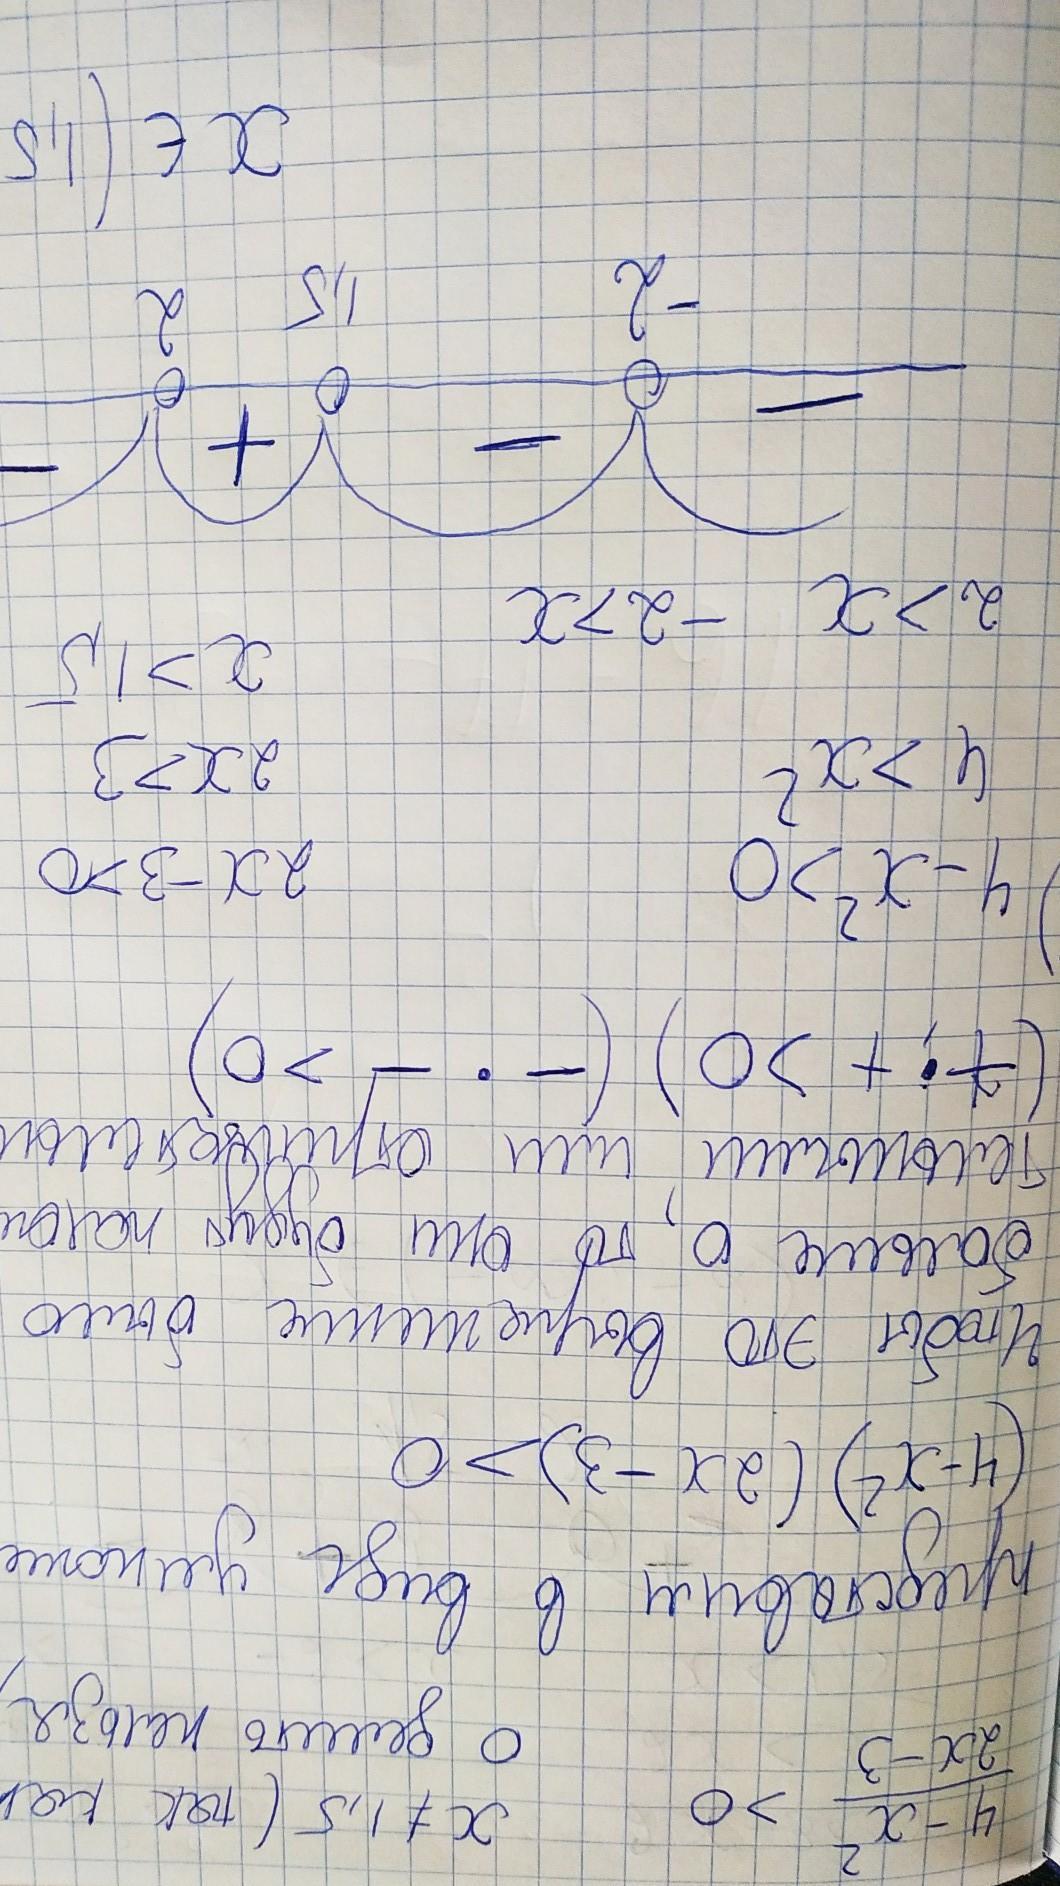 4-x²/2x-3 >0 x≠1,5 (так как
0 делить нельзя,
представим в виде умноже
(4-x²)(2x-3)>0
Чтобы это выражение было
больше 0, то они будут
или отрицательны
(+·+ >0) (-·- >0)
) 4-x²>0 2x-3>0
4>x² 2x>3
2>x -2>x x>1,5
- - + -
-2 1,5 2
x∈(1,5